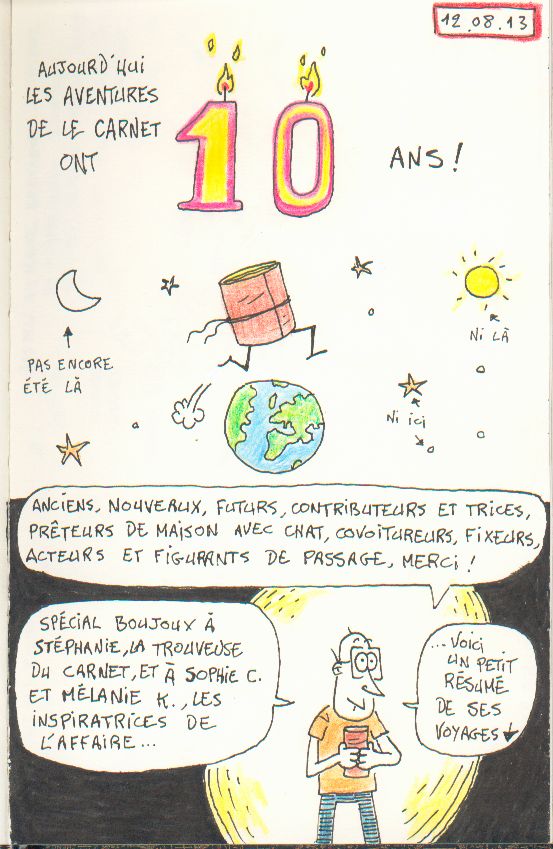 12.08.13
AUJOURD'HUI
LES AVENTURES
DE LE CARNET
ONT
10
ANS !
PAS ENCORE
ÉTÉ LÀ
NI LÀ
NI ICI
ANCIENS, NOUVEAUX, FUTURS, CONTRIBUTEURS ET TRICES,
PRÊTEURS DE MAISON AVEC CHAT, COVOITUREURS, FIXEURS,
ACTEURS ET FIGURANTS DE PASSAGE, MERCI !
SPÉCIAL BOUJOUX À
STÉPHANIE, LA TROUVEUSE
DU CARNET, ET À SOPHIE C.
ET MÉLANIE K., LES
INSPIRATRICES DE
L'AFFAIRE...
...VOICI
UN PETIT
RÉSUMÉ
DE SES
VOYAGES